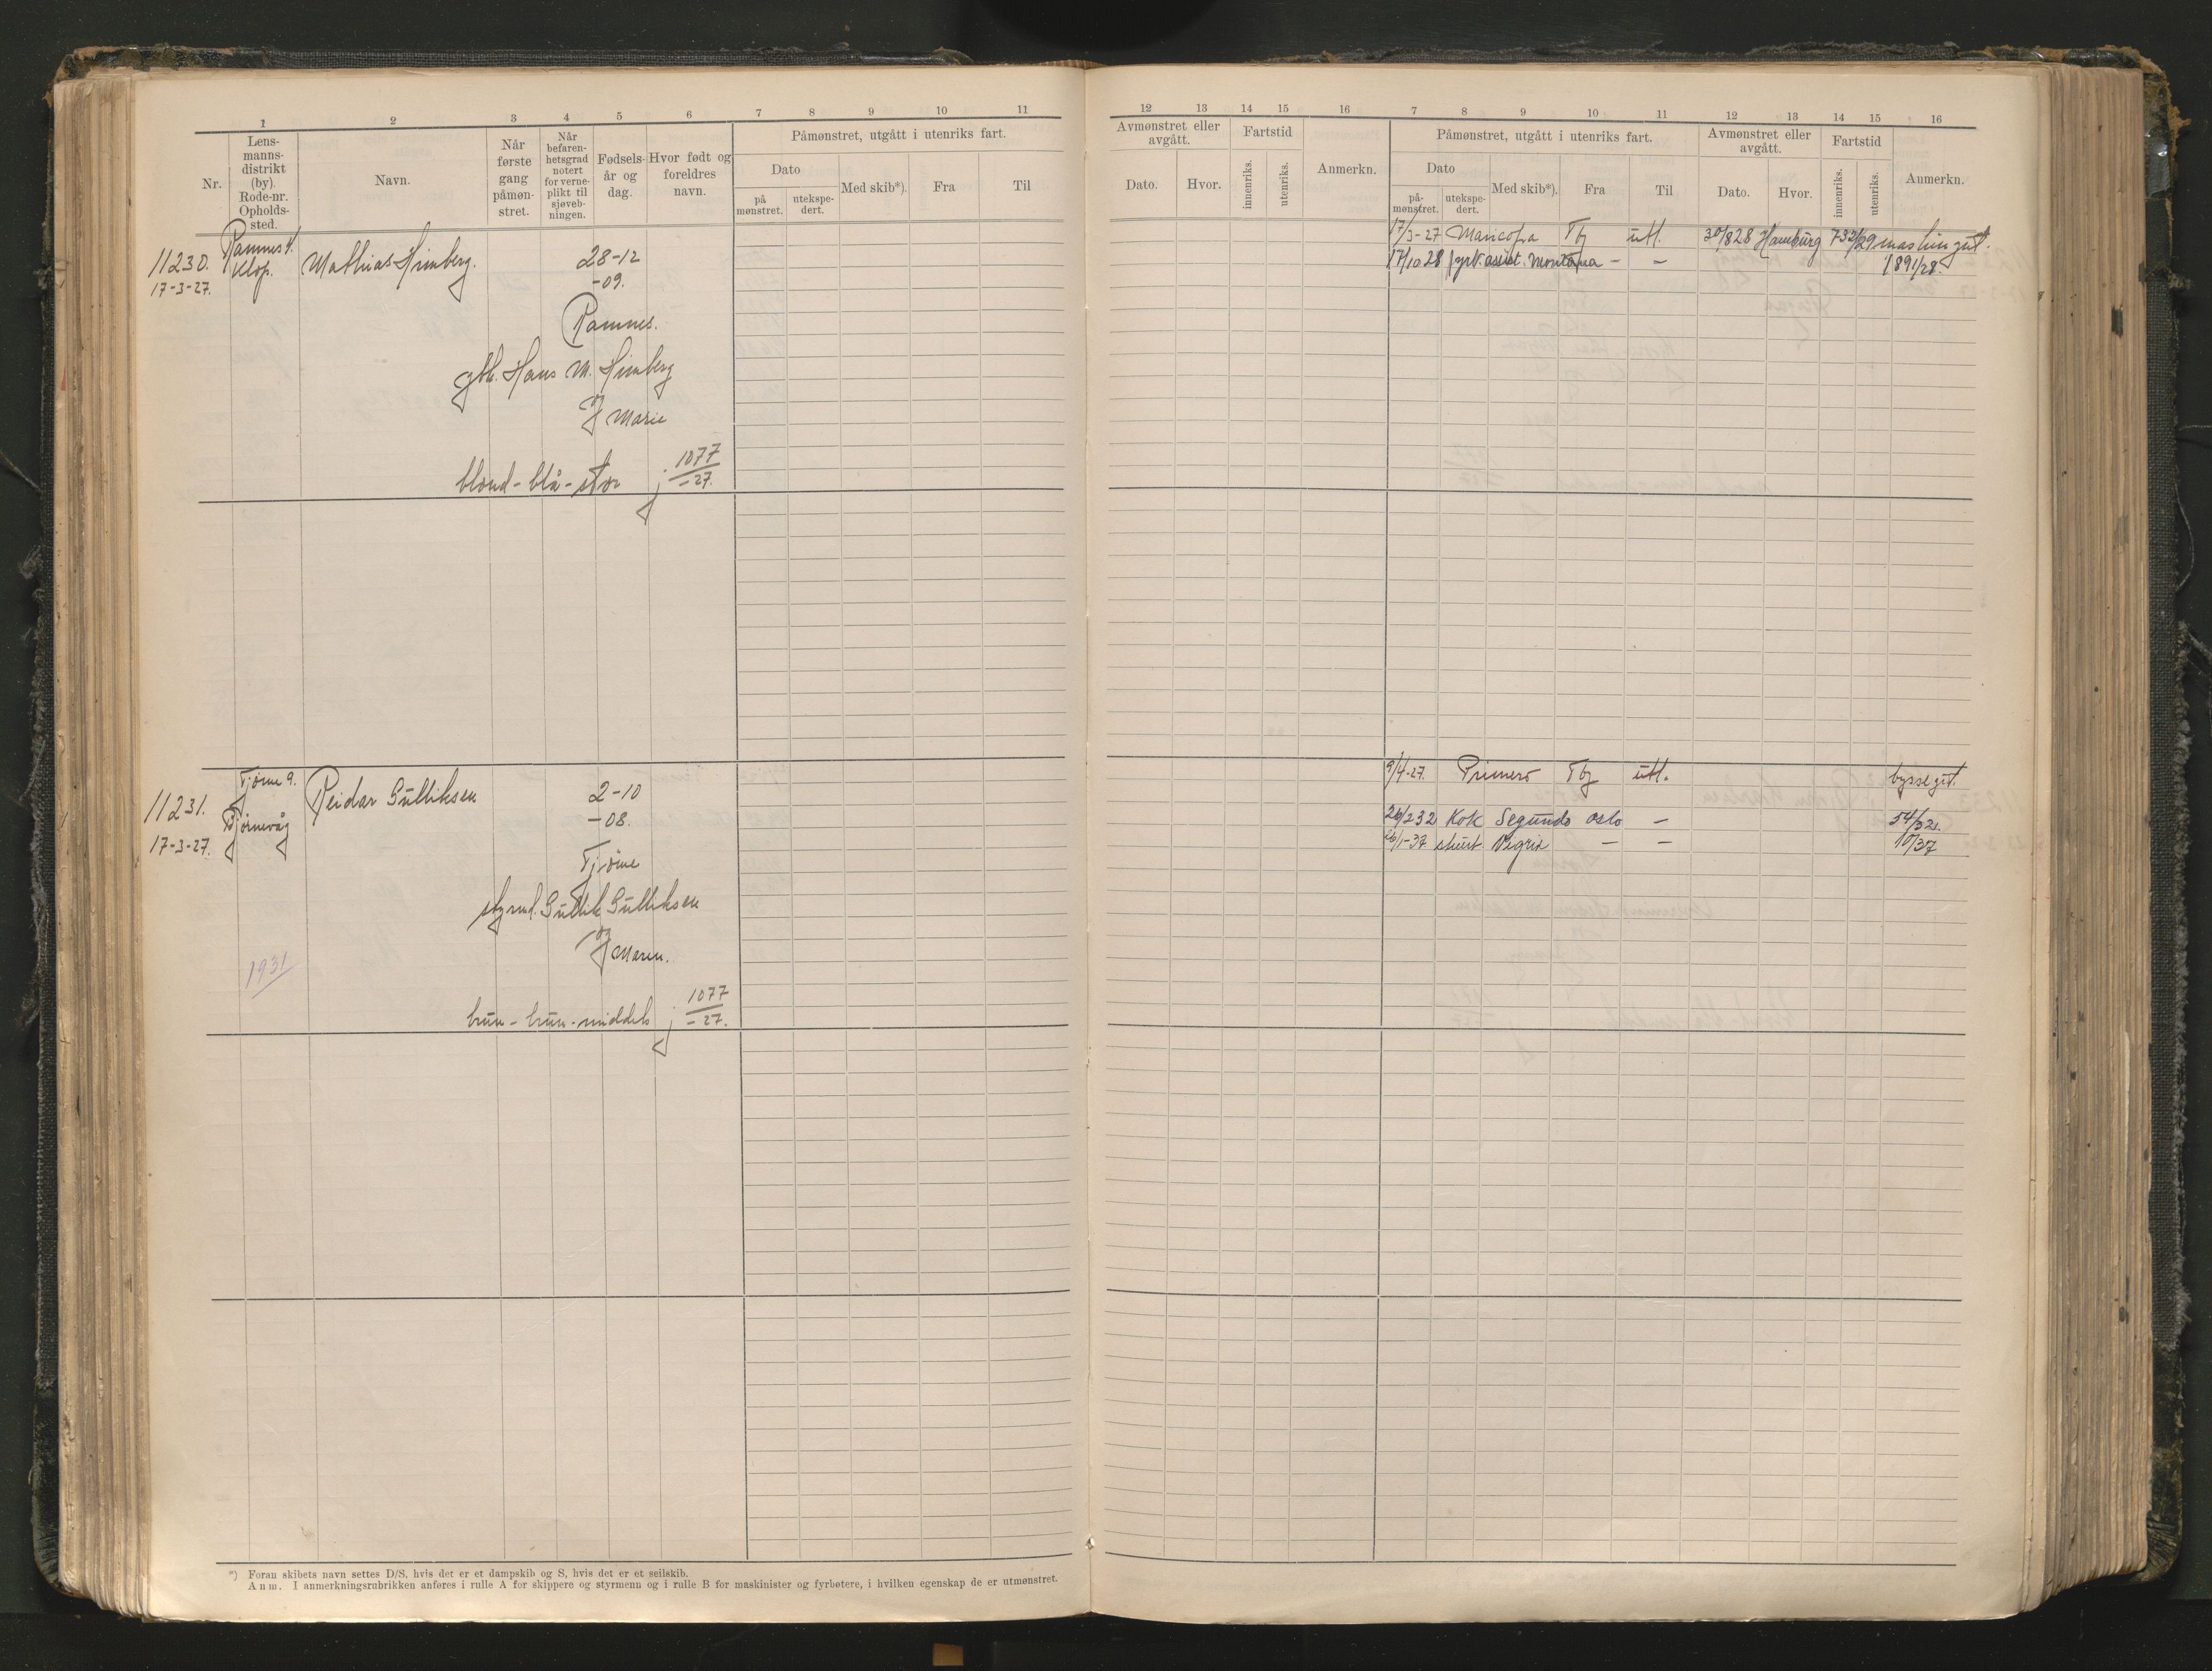 1 2 3 4 5 6 7 8 9 10 11
Nr.
Lens-
manns-
distrikt
(by).
Rode-nr.
Opholds-
sted.
Navn.
Når
første
gang
påmøn-
stret.
Når
befaren-
hetsgrad
notert
for verne-
plikt til
sjøveb-
ningen.
Fødsels-
år og
dag.
Hvor født og
foreldres
navn.
Påmønstret, utgått i utenriks fart.
Dato
på
mønstret.
utekspe-
dert.
Med skib*).
Fra
Til
11230.
17-3-27.
Ramnes 4.
Klop.
Mathias Himberg.
28-12
-09.
Ramnes.
gbr. Hans M. Himberg
og
Marie
blond - blå - stor j 1077/-27.
11231.
17-3-27.
Tjøme 9.
Bjørnevåg
1931
Reidar Gulliksen
2-10
-08.
Tjöme
styrmd. Gullik Gulliksen
og
Maren.
brun - brun - middels j 1077/-27.
*) Foran skibets navn settes D/S, hvis det er et dampskib og S, hvis det er et seilskib.
Anm. I anmerkningsrubrikken anføres i rulle A for skippere og styrmenn og i rulle B for maskinister og fyrbøtere, i hvilken egenskap de er utmønstret.
12 13 14 15 16 7 8 9 10 11 12 13 14 15 16
Avmønstret eller
avgått.
Dato.
Hvor.
Fartstid
innenriks.
utenriks.
Anmerkn.
Påmønstret, utgått i utenriks fart.
Dato
på-
mønstret.
utekspe-
dert.
Med skib*).
Fra
Til
Avmønstret eller
avgått.
Dato.
Hvor.
Fartstid
innenriks.
utenriks.
Anmerkn.
17/3-27 Maricopa Tbg utl. 30/8 28 Hamburg 732/29 maskingut.
17/10 28 fyrb. assist. Montana - - 1891/28.
9/4-27. Primero Tbg utl. byssegut.
26/2 32 Kok Segundo Oslo - 54/32.
26/1-37 stuert Vigrid - - 10/37